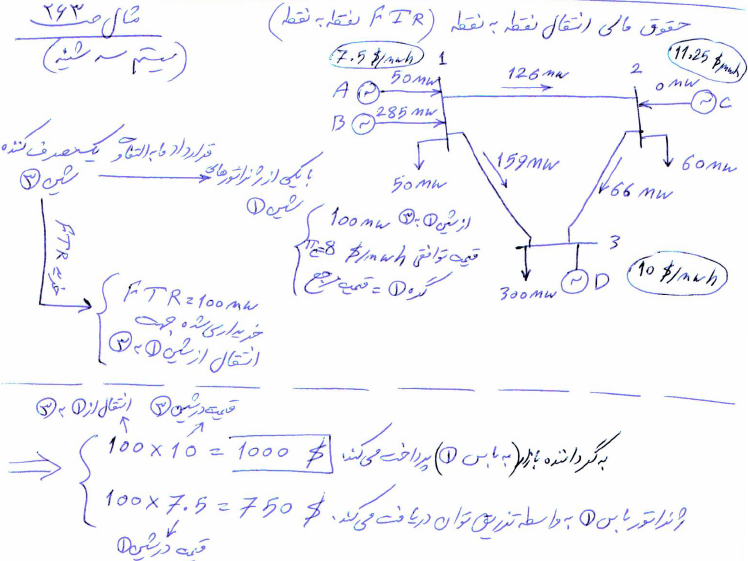 مثال صـ ۲۶۳
(سیستم سه شینه)
حقوق مالی انتقال نقطه به نقطه (FTR نقطه به نقطه)
7.5 $/mwh
11.25 $/mwh
1
2
A
50mw
126mw
0mw
C
B
285mw
50mw
159mw
66mw
60mw
3
300mw
D
10 $/mwh
قرارداد مابه التفاوت یک مصرف کننده
شین ③
با یکی از ژنراتورهای
شین ①
100mw از شین ① به ③
قیمت توافقی π=8 $/mwh
گره ① = قیمت مرجع
خرید FTR
FTR=100mw
خریداری شده جهت
انتقال از شین ① به ③
انتقال از ① به ③
قیمت در شین ③
100 x 10 = 1000 $
به گرداننده بازار (به باس ①) پرداخت می‌کند.
100 x 7.5 = 750 $
ژنراتور باس ① به واسطه تزریق توان دریافت می‌کند.
قیمت در شین ①